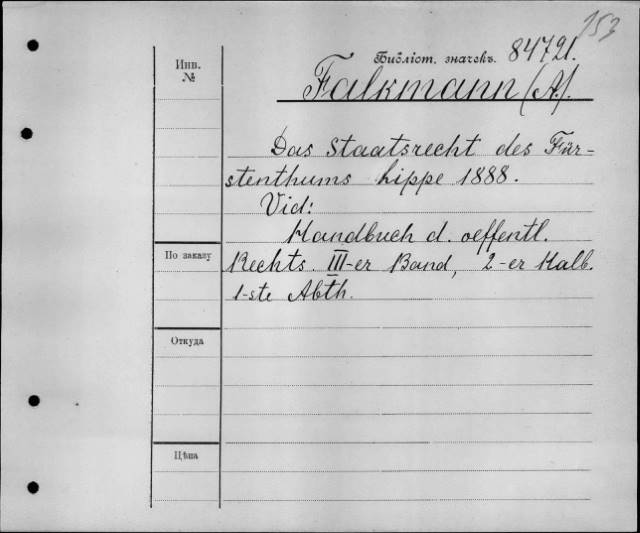 153
Инв. №
Библіот. значекъ. 84721.
Falkmann (A).
Das Staatsrecht des Für-
stenthums Lippe 1888.
Vid:
Handbuch d. oeffentl.
По заказу
Rechts. III-er Band, 2-er Halb.
1-ste Abth.
Откуда
Цѣна